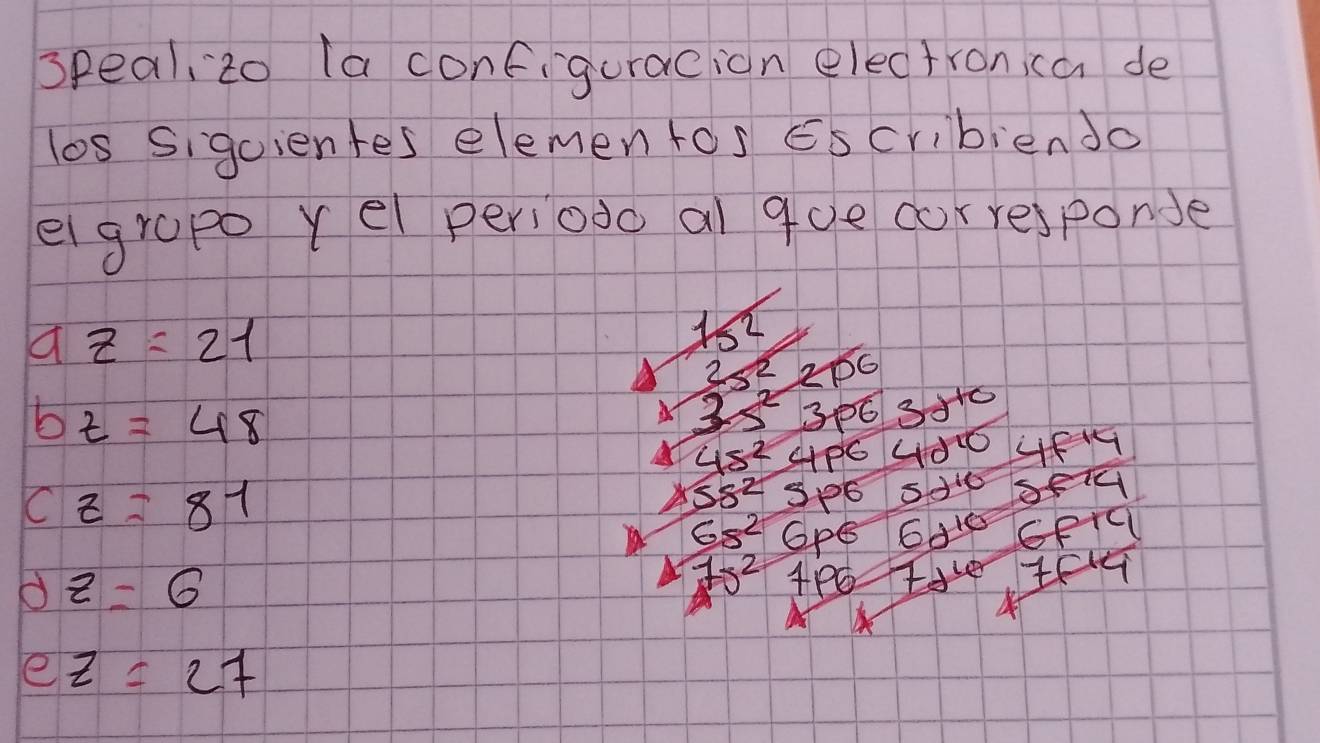 3 Realizo la configuracion electronica de
los siguientes elementos Escribiendo
el grupo y el periodo al que corresponde
a z = 21
b z = 48
c z = 81
d z = 6
e z = 27
1s²
2s² 2p6
3s² 3p6 3d10
4s² 4p6 4d10 4f14
5s² 5p6 5d10 5f14
6s² 6p6 6d10 6f14
7s² 7p6 7d10 7f14